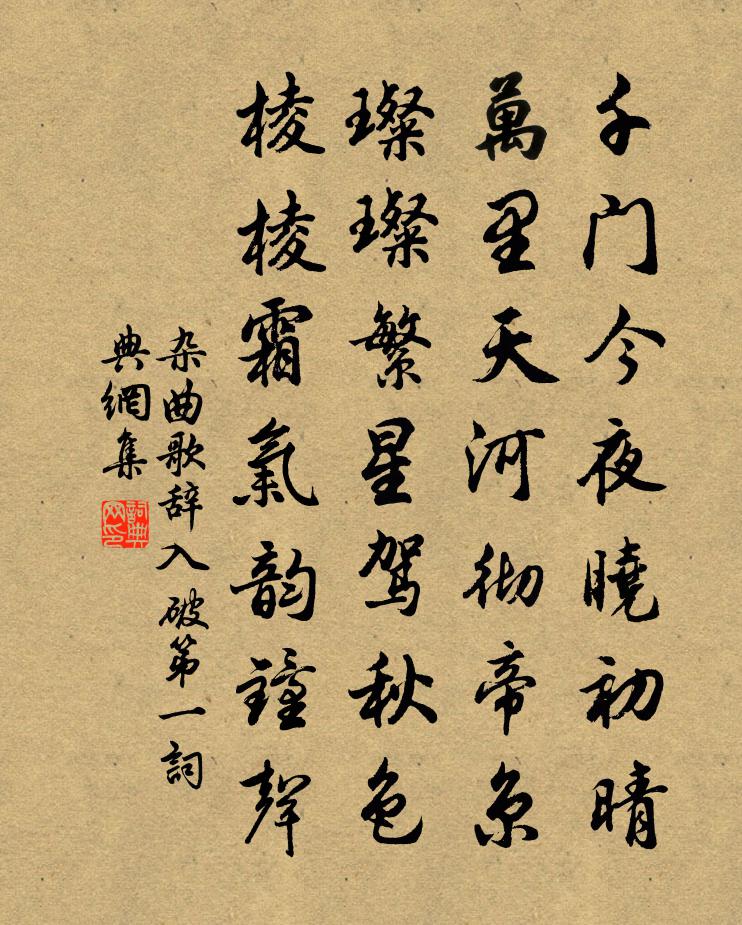 千門今夜曉初晴
萬里天河徹帝京
璨璨繁星駕秋色
棱棱霜氣韵鐘聲
杂曲歌辞入破第一詞
典網集
詞典
网印